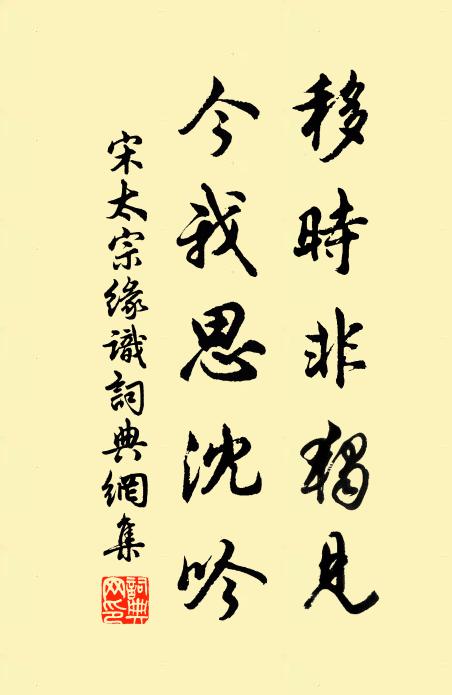 移時非獨見
今我思沈吟
宋太宗緣識詞典網集
詞典
网印